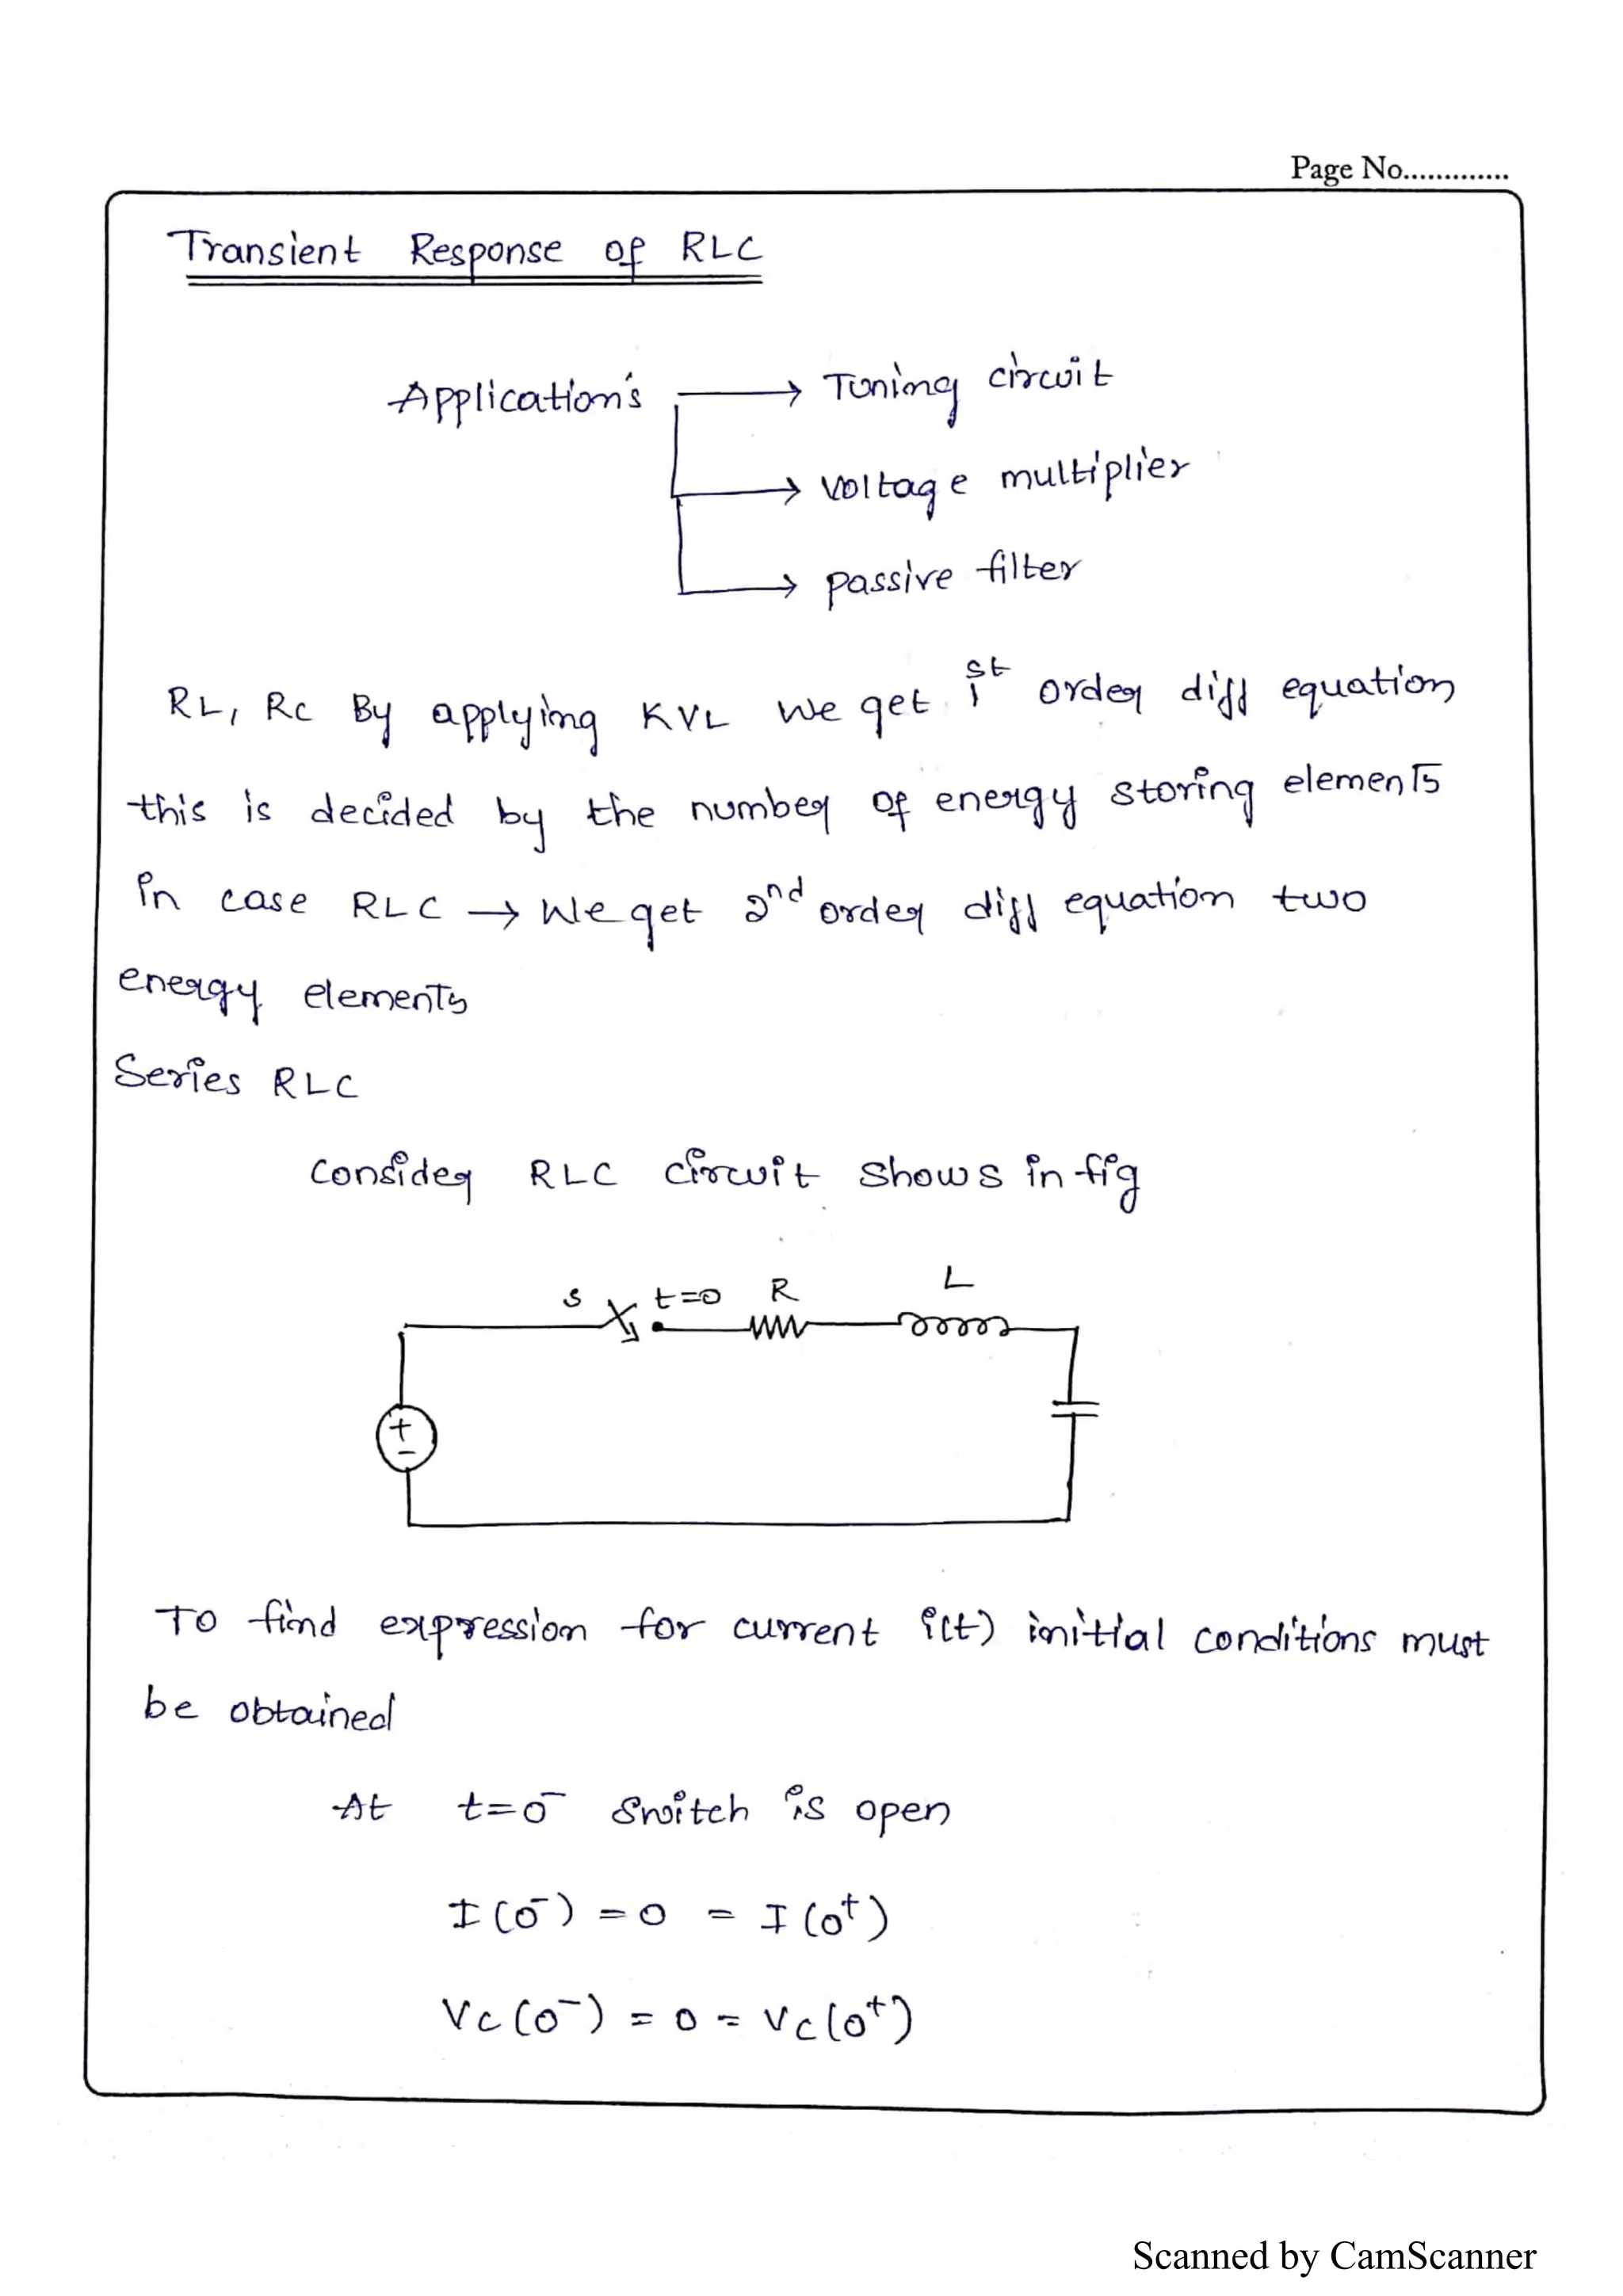 Page No.............
Transient Response of RLC
Application's → Tuning circuit
→ Voltage multiplier
→ passive filter
RL, RC By applying KVL We get 1st order diff equation
this is decided by the number of energy storing elements
in case RLC → We get 2nd order diff equation two
energy elements
Series RLC
Consider RLC circuit shows in fig
S t=0 R L
+
-
To find expression for current i(t) initial conditions must
be obtained
At t=0⁻ Switch is open
I(0⁻) = 0 = I(0⁺)
Vc(0⁻) = 0 = Vc(0⁺)
Scanned by CamScanner